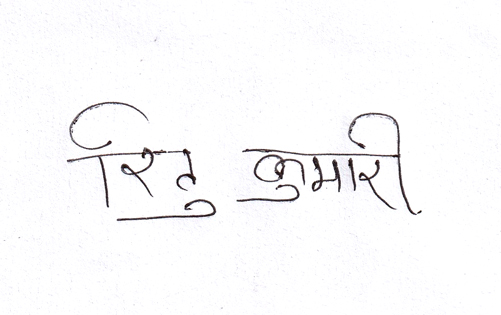 रितु कुमारी